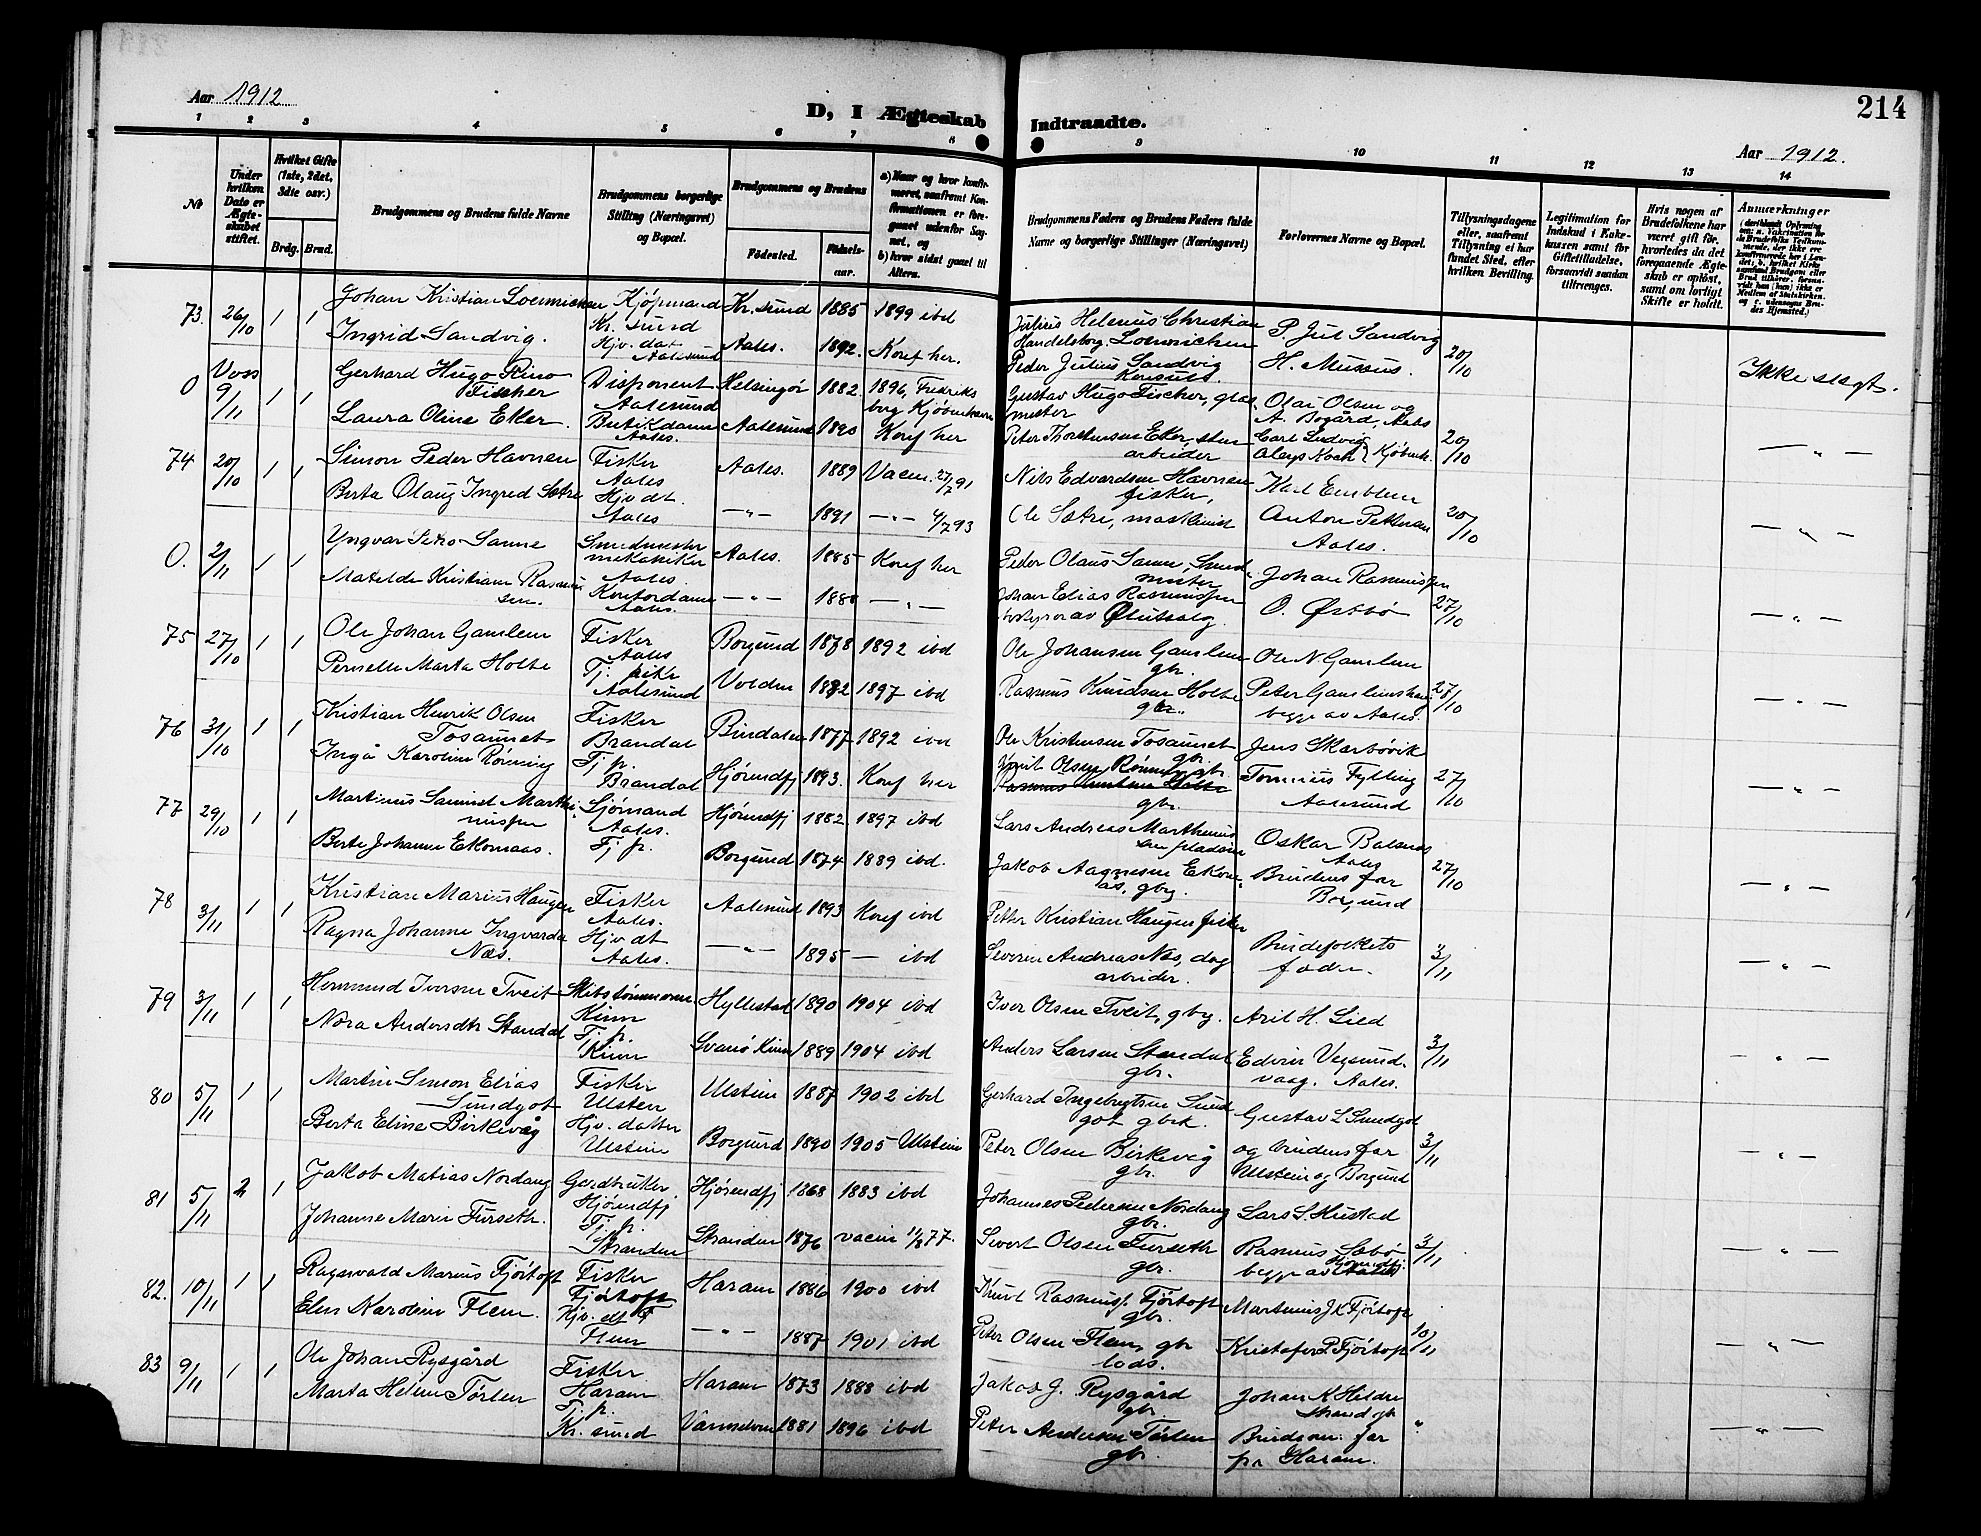 Aar 1912
D, I Ægteskab Indtraadte.
214
Aar 1912.
1 2 3 4 5 6 7 8 9 10 11 12 13 14
№
Under hvilken Dato er Ægteskabet stiftet.
Hvilket Gifte (1ste, 2det, 3die osv.)
Brdg. Brud.
Brudgommens og Brudens fulde Navne
Brudgommens borgerlige Stilling (Næringsvei) og Bopæl.
Brudgommens og Brudens
Fødested. Fødselsaar.
a) Naar og hvor konfirmeret, saafremt Konfirmationen er foregaaet udenfor Sognet, og
b) hvor sidst gaaet til Alters.
Brudgommens Faders og Brudens Faders fulde Navne og borgerlige Stillinger (Næringsvei)
Forlovernes Navne og Bopæl.
Tillysningsdagene eller, saafremt Tillysning ei har fundet Sted, efter hvilken Bevilling.
Legitimation for Indskud i Enkekassen samt for Giftetilladelse, forsaavidt saadan tiltrænges.
Hvis nogen af Brudefolkene har været gift før, hvorledes da det foregaaende Ægteskab er opløst, samt om lovligt Skifte er holdt.
Anmærkninger
73. 26/10 1 1 Johan Kristian Loennichen Kjøpmand Kr.sund Kr.sund 1885 1899 ibd Julius Helenius Christian Loennichen Handelsborg. P. Jul Sandvig
Ingrid Sandvig. Hjv. dat Aalesund Aales. 1892. Konf her. Peder Julius Sandvig Konsul H. Mussus. 20/10 Ikke slegt.
0 Voss 9/11 1 1 Gerhard Hugo Rino Fischer Disponent Aalesund Helsingør 1882 1896, Fredriksborg Kjøbenhavn Gustav Hugo Fischer, glasmester Olai Olsen og A. Bogård, Aales
Laura Oline Eker. Butikdame Aales. Aalesund 1890 Konf her Peter Thorstensen Eker, stenarbeider Carl Ludvig Aloys Koch Kjøbenh. 20/10 — " —
74 20/10 1 1 Simon Peder Havnen Fisker Aales Aales. 1889 Vacin. 27/7 91 Nils Edvardsen Havnen fisker, Karl Emblem
Berta Olaug Ingred Sætre Hjv dt. Aales — " — 1891 — " — 4/7 93 Ole Sætre, maskinist Anton Pettersen Aales. 20/10 — " —
0. 2/11 1 1 Yngvar Sanne Smedmester mekaniker Aales. Aales. 1885 Konf her Peder Olaus Sanne, Smedmester Johan Rasmussen
Matilde Kristiane Rasmussen. Kontordame Aales. — " — 1888 — " — Johan Elias Rasmussen bestyrer av Ølutsalg. O. Østbø 27/10 — " —
75 27/10 1 1 Ole Johan Gamlem Fisker Aales Borgund 1878 1892 ibd Ole Johansen Gamlem gbr. Ole N Gamlem
Pernelle Marta Holte Tj. pike Aalesund Volden 1882 1897 ibd Rasmus Knudsen Holte gbr. Peter Gamlemshaug begge av Aales. 27/10 — " —
76 31/10 1 1 Kristian Henrik Olsen Tosaunet Fisker Brandal Bindalen 1877 1892 ibd Ole Kristensen Tosaunet gbr. Jens Skarbøvik
Inga Karoline Rønning Tj. p. Brandal Hjørundfj 1893. Konf her Knut Olsen Rønning gbr. Rasmus Knudsen Holte gbr. Tomas Fylling Aalesund 27/10 — " —
77 29/10 1 1 Martinus Samuel Marthinussen Sjømand Aales. Hjørundfj 1882 1897 ibd Lars Andreas Marthinussen Oskar Balsnes Aales
Berte Johanne Ekornaas. Tj p. Borgund 1874 1889 ibd. Jakob Aagnesen Ekornaas, gbr. Brudens far Borgund 27/10 — " —
78 3/11 1 1 Kristian Marius Haugen Fisker Aales. Aalesund 1893 Konf ibd Petter Kristian Haugen fisker Brudefolkets fædre.
Ragna Johanne Ingvarda Næs. Hjv dt Aales. — " — 1895 — ibd Severin Andreas Næs, dagarbeider. 3/11 — " —
79 3/11 1 1 Hermund Iversen Tveit Skibstømmerm Kinn Hyllestad 1890 1904 ibd Iver Olsen Tveit, gbr. Aril H. Lied
Nora Andersdtr Standal Tj. p. Kinn Svanø Kinn 1889 1904 ibd Anders Larsen Standal gbr. Edvin Vegsundvaag. Aales. 3/11 — " —
80 5/11 1 1 Martin Simon Elias Sundgot Fisker Ulsten Ulstein 1887 1902 ibd Gerhard Ingebrigtsen Sundgot gbrk. Gustav L Sundgot
Berta Eline Birkevåg Hjv. datter Ulstein Borgund 1890 1905 Ulstein Peter Olsen Birkevåg gbr. og brudens far Ulstein og Borgund 3/11 — " —
81 5/11 2 1 Jakob Matias Nordang Gardbruker Hjørundfj Hjørundfj 1868 1883 ibd Johannes Pedersen Nordang gbr. Lars S. Hustad
Johanne Marie Furseth. Tj. p. Stranden Stranden 1876 vacin 11/8 77. Sivert Olsen Furseth gbr. Rasmus Sæbø begge av Hjørundfj. Aales 3/11 — " —
82. 10/11 1 1 Ragnvald Marius Fjørtoft Fisker Fjørtoft Haram 1886 1900 ibd Knut Rasmuss. Fjørtoft gbr. Martinus J K Fjørtoft
Elen Karoline Flem. Hjv. dt Flem — " — 1887 1901 ibd Peter Olsen Flem, gbr lods. Kristofer P Fjørtoft 10/11 — " —
83 9/11 1 1 Ole Johan Rysgård Fisker Haram Haram 1873 1888 ibd Jakob G. Rysgård gbr. Johan K Hildre Strand gbr
Marta Helene Tørlen Tj. p. Kr. sund 1881 1896 ibd Peter Andersen Tørlen gbr. Brudgom. far fra Haram. " — " —